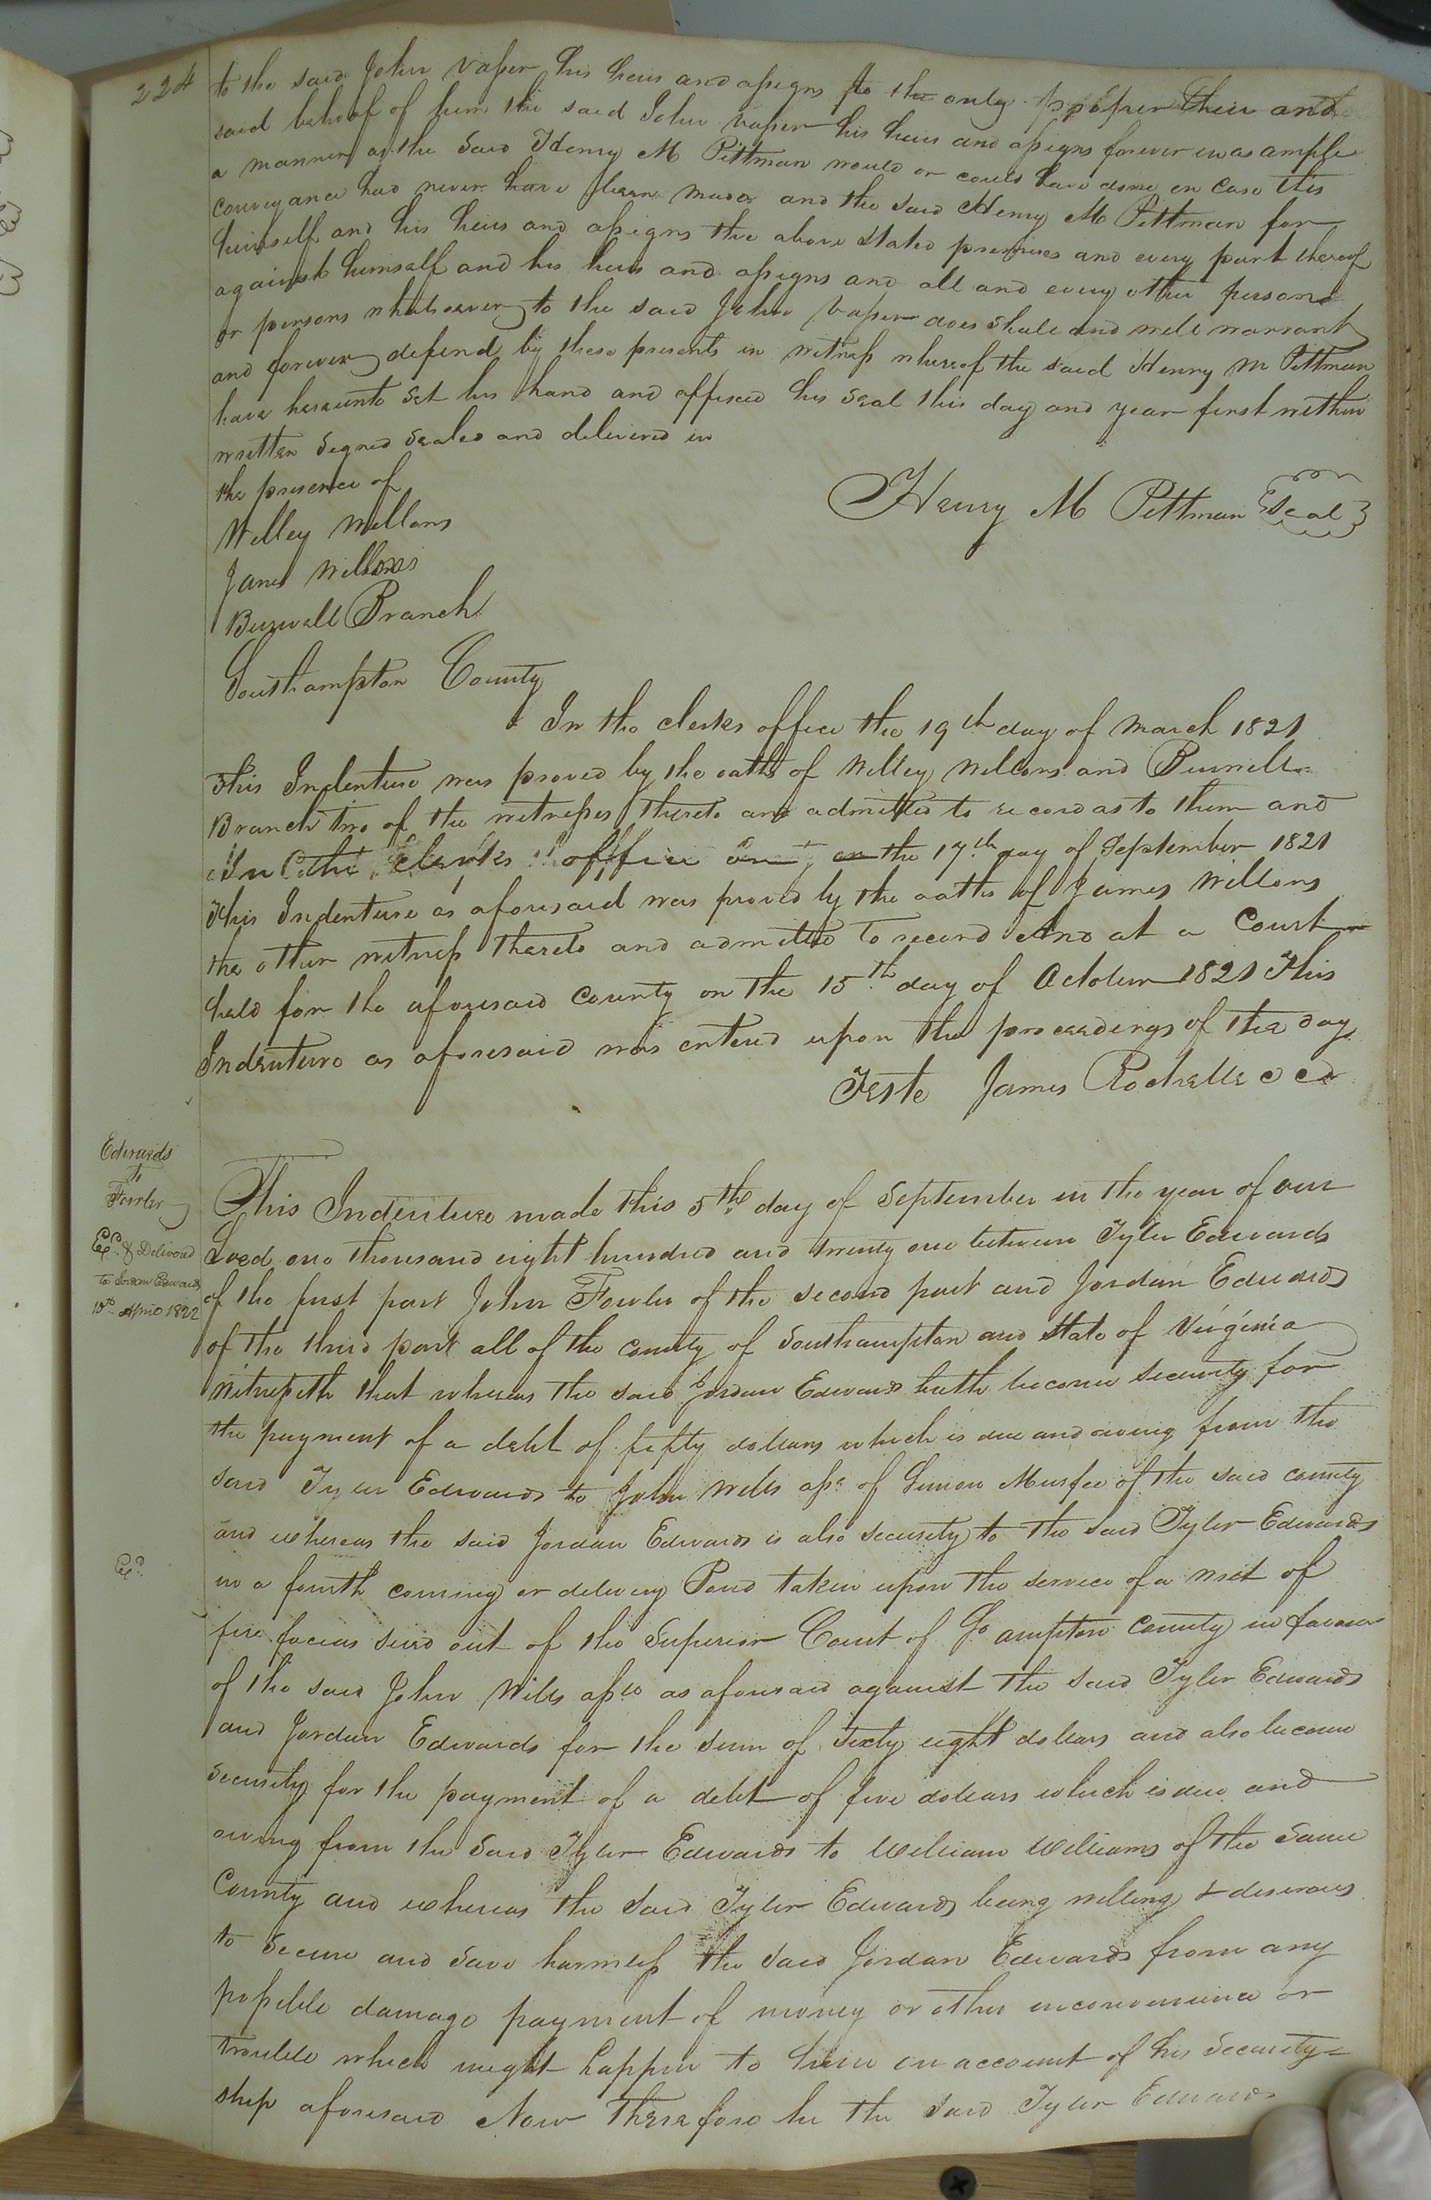 224
to the said John Vasser his heirs and assigns to the only proper their and
said behoof of him the said John Vasser his heirs and assigns forever in as ample
a manner as the said Henry M Pittman would or could have done in case this
conveyance had never have been made and the said Henry M Pittman for
himself and his heirs and assigns the above stated premises and every part thereof
against himself and his heirs and assigns and all and every other person
or persons whatsoever to the said John Vasser does shall and will warrant
and forever defend by these presents in witness whereof the said Henry M Pittman
have hereunto set his hand and affixed his seal this day and year first within
written Signed Sealed and delivered in
the presence of
Henry M Pittman Seal
Willey Wellons
James Wellons
Burwell Branch
Southampton County
In the clerks office the 19th day of March 1821
This Indenture was proved by the oaths of Willey Wellons and Burwell
Branch two of the witnesses thereto and admitted to record as to them and
In the clerks office on the 17th day of September 1821
This Indenture as aforesaid was proved by the oaths of James Wellons
the other witness thereto and admitted to record And at a Court
held for the aforesaid county on the 15th day of October 1821 This
Indenture as aforesaid was entered upon the proceedings of the day
Teste James Rochelle
Edwards
to
Fowler
Exd & Delivered
to Edwards
10th April 1822
This Indenture made this 5th day of September in the year of our
Lord one thousand eight hundred and twenty one between Tyler Edwards
of the first part John Fowler of the second part and Jordan Edwards
of the third part all of the county of Southampton and State of Virginia
Witnesseth that whereas the said Jordan Edwards hath become security for
the payment of a debt of fifty dollars which is due and owing from the
said Tyler Edwards to John Wills asse of Simon Murfee of the said county
and whereas the said Jordan Edwards is also security to the said Tyler Edwards
in a fourth coming or delivery Bond taken upon the service of a writ of
fire facias sued out of the Superior Court of So ampton County in favour
of the said John Wills asse as aforesaid against the said Tyler Edwards
and Jordan Edwards for the sum of sixty eight dollars and also become
security for the payment of a debt of five dollars which is due and
owing from the said Tyler Edwards to William Williams of the same
County and whereas the said Tyler Edwards being willing & desirous
to secure and save harmless the said Jordan Edwards from any
possible damage payment of money or other inconvenience or
trouble which might happen to him on account of his Security-
ship aforesaid Now Therefore he the said Tyler Edwards